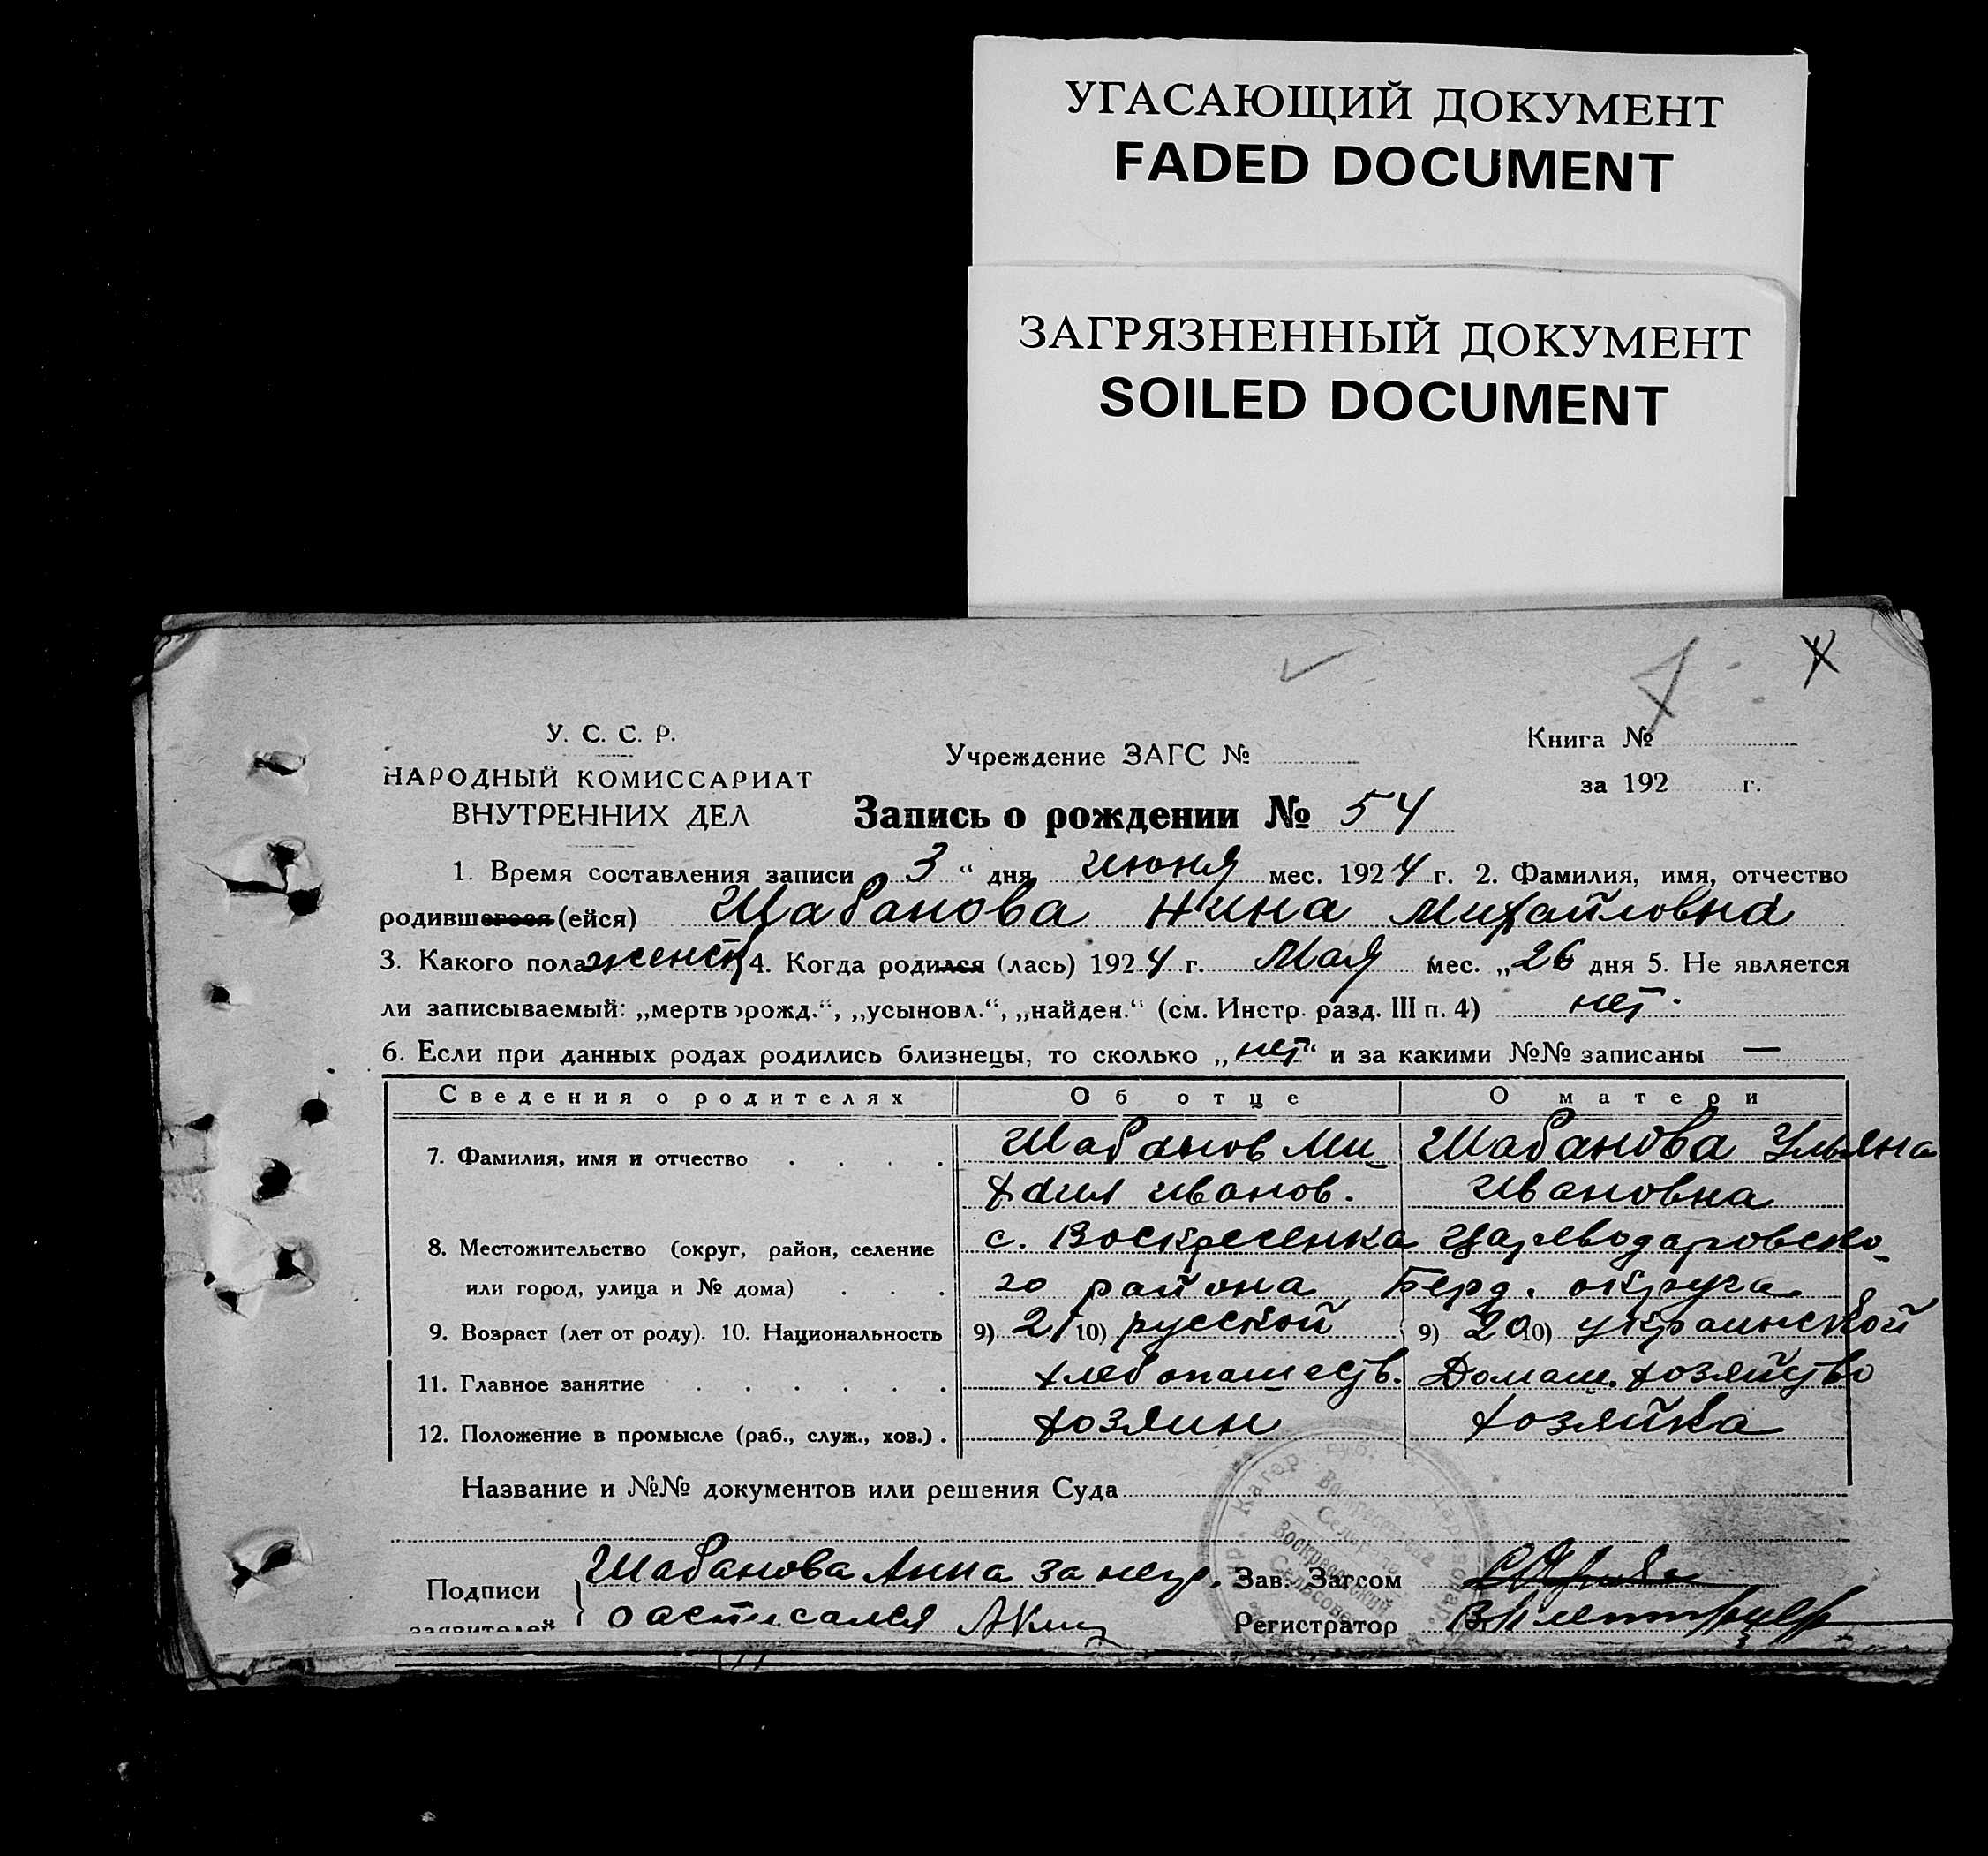 УГАСАЮЩИЙ ДОКУМЕНТ
FADED DOCUMENT
ЗАГРЯЗНЕННЫЙ ДОКУМЕНТ
SOILED DOCUMENT
У. С. С. Р.
НАРОДНЫЙ КОМИССАРИАТ
ВНУТРЕННИХ ДЕЛ
Учреждение ЗАГС №
Книга №
за 192 г.
Запись о рождении № 54
1. Время составления записи 3 “ дня июня мес. 1924 г. 2. Фамилия, имя, отчество
родившегося (ейся) Шабанова Нина Михайловна
3. Какого пола женск 4. Когда родился (лась) 1924 г. Мая мес. „26 дня 5. Не является
ли записываемый: „мертворожд.“, „усыновл.“, „найден.“ (см. Инстр. разд. III п. 4) нет.
6. Если при данных родах родились близнецы, то сколько „нет“ и за какими №№ записаны —
Сведения о родителях Об отце О матери
7. Фамилия, имя и отчество . . . . Шабанов Ми Шабанова Ульяна
хаил иванов. Ивановна
8. Местожительство (округ, район, селение с. Воскресенка Цареводаровско-
или город, улица и № дома) . . . го района Берд. округа
9. Возраст (лет от роду). 10. Национальность 9) 21 10) русской 9) 20 10) украинской
11. Главное занятие . . . . . . хлебопашеств. Домаш. хозяйство
12. Положение в промысле (раб., служ., хоз.) . хозяин хозяйка
Название и №№ документов или решения Суда
Подписи
заявителей
Шабанова Анна за негр.
Зав. Загсом
Регистратор
Воскресенский